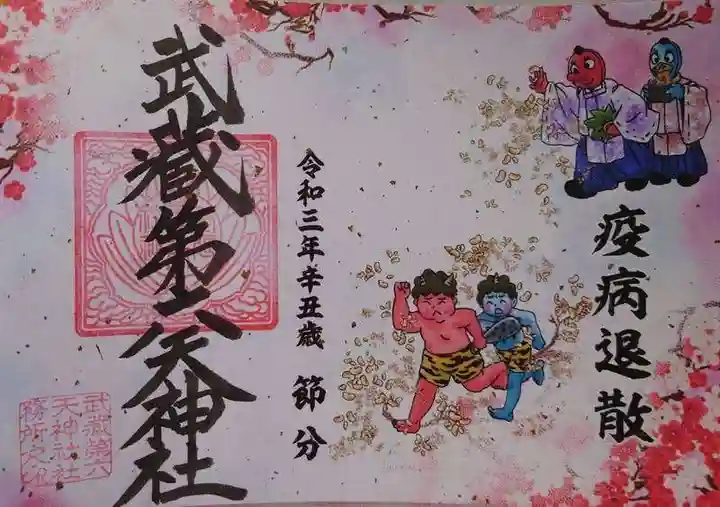 疫病退散
令和三年辛丑歳 節分
武蔵第六天神社
武蔵第六
天神社社
務所之印